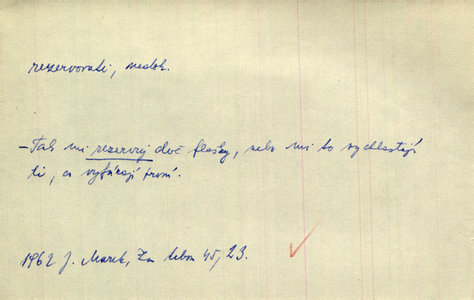 rezervovati, nedok.
–Tak mi rezervuj dvě flašky, nebo mi to vychlastají
ti, co vyfukují první.
1962 J. Marek, Za tebou 45, 23.